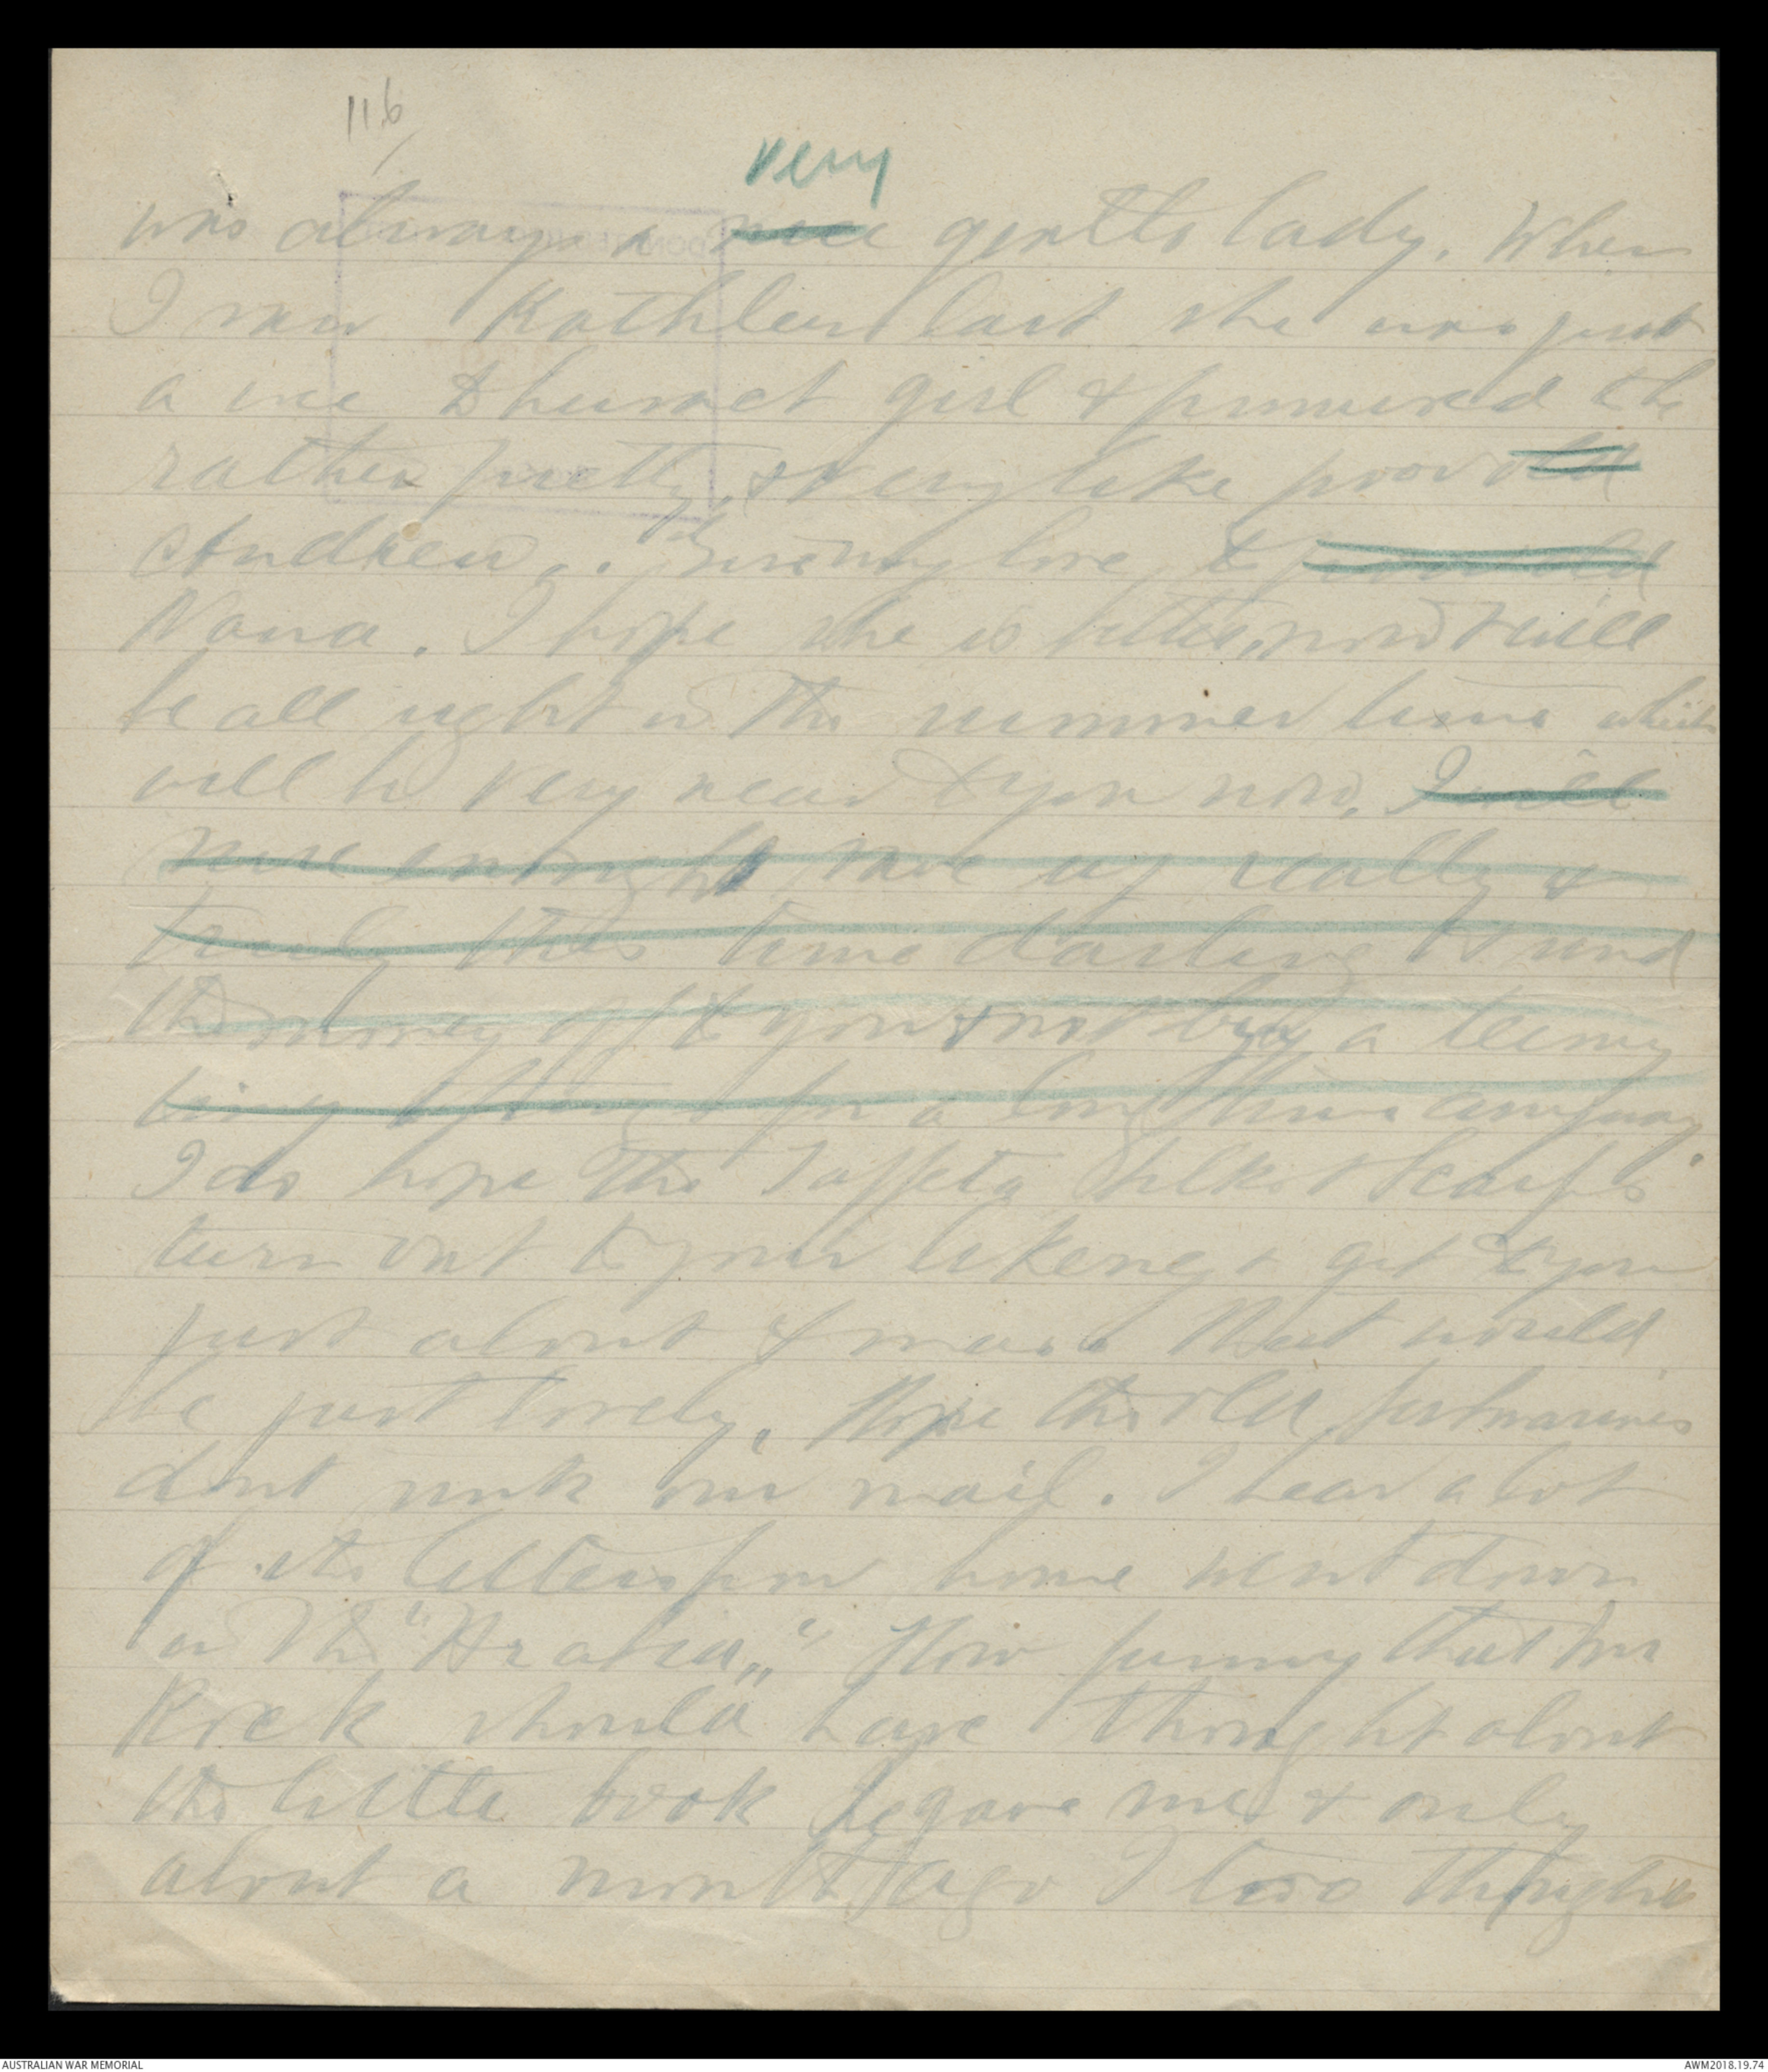 116
very
was always a nice gentle lady. When
I saw Kathleen last she was just
a wee girl & promised to be
rather pretty, & very like poor old
Andrew. Give my love to poor old
Nana. I hope she is better now & will
be all right in the summer time which
will be very near to you now. I will
save enough leave up really &
truly this time darling & send
the money off to you & not buy a teeny
tiny thing for a long time anyway.
I do hope the Taffeta silk & scarfs
turn out to your likeing & get to you
just about Xmas. That would
be just lovely. Hope the old submarines
dont sink our mail. I hear a lot
of letters from home went down
in the "Arabia". How funny that Mr
Rock should have thought about
the little book he gave me & only
about a month ago I too thought
AUSTRALIAN WAR MEMORIAL
AWM2018.19.74